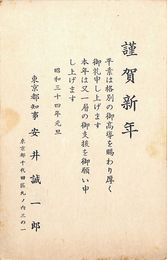 謹賀新年
平素は格別の御高導を賜わり厚く
御礼申し上げます
本年は又一層の御支援を御願い申
し上げます
昭和三十四年元旦
東京都知事 安井誠一郎
東京都千代田区丸ノ内三の一